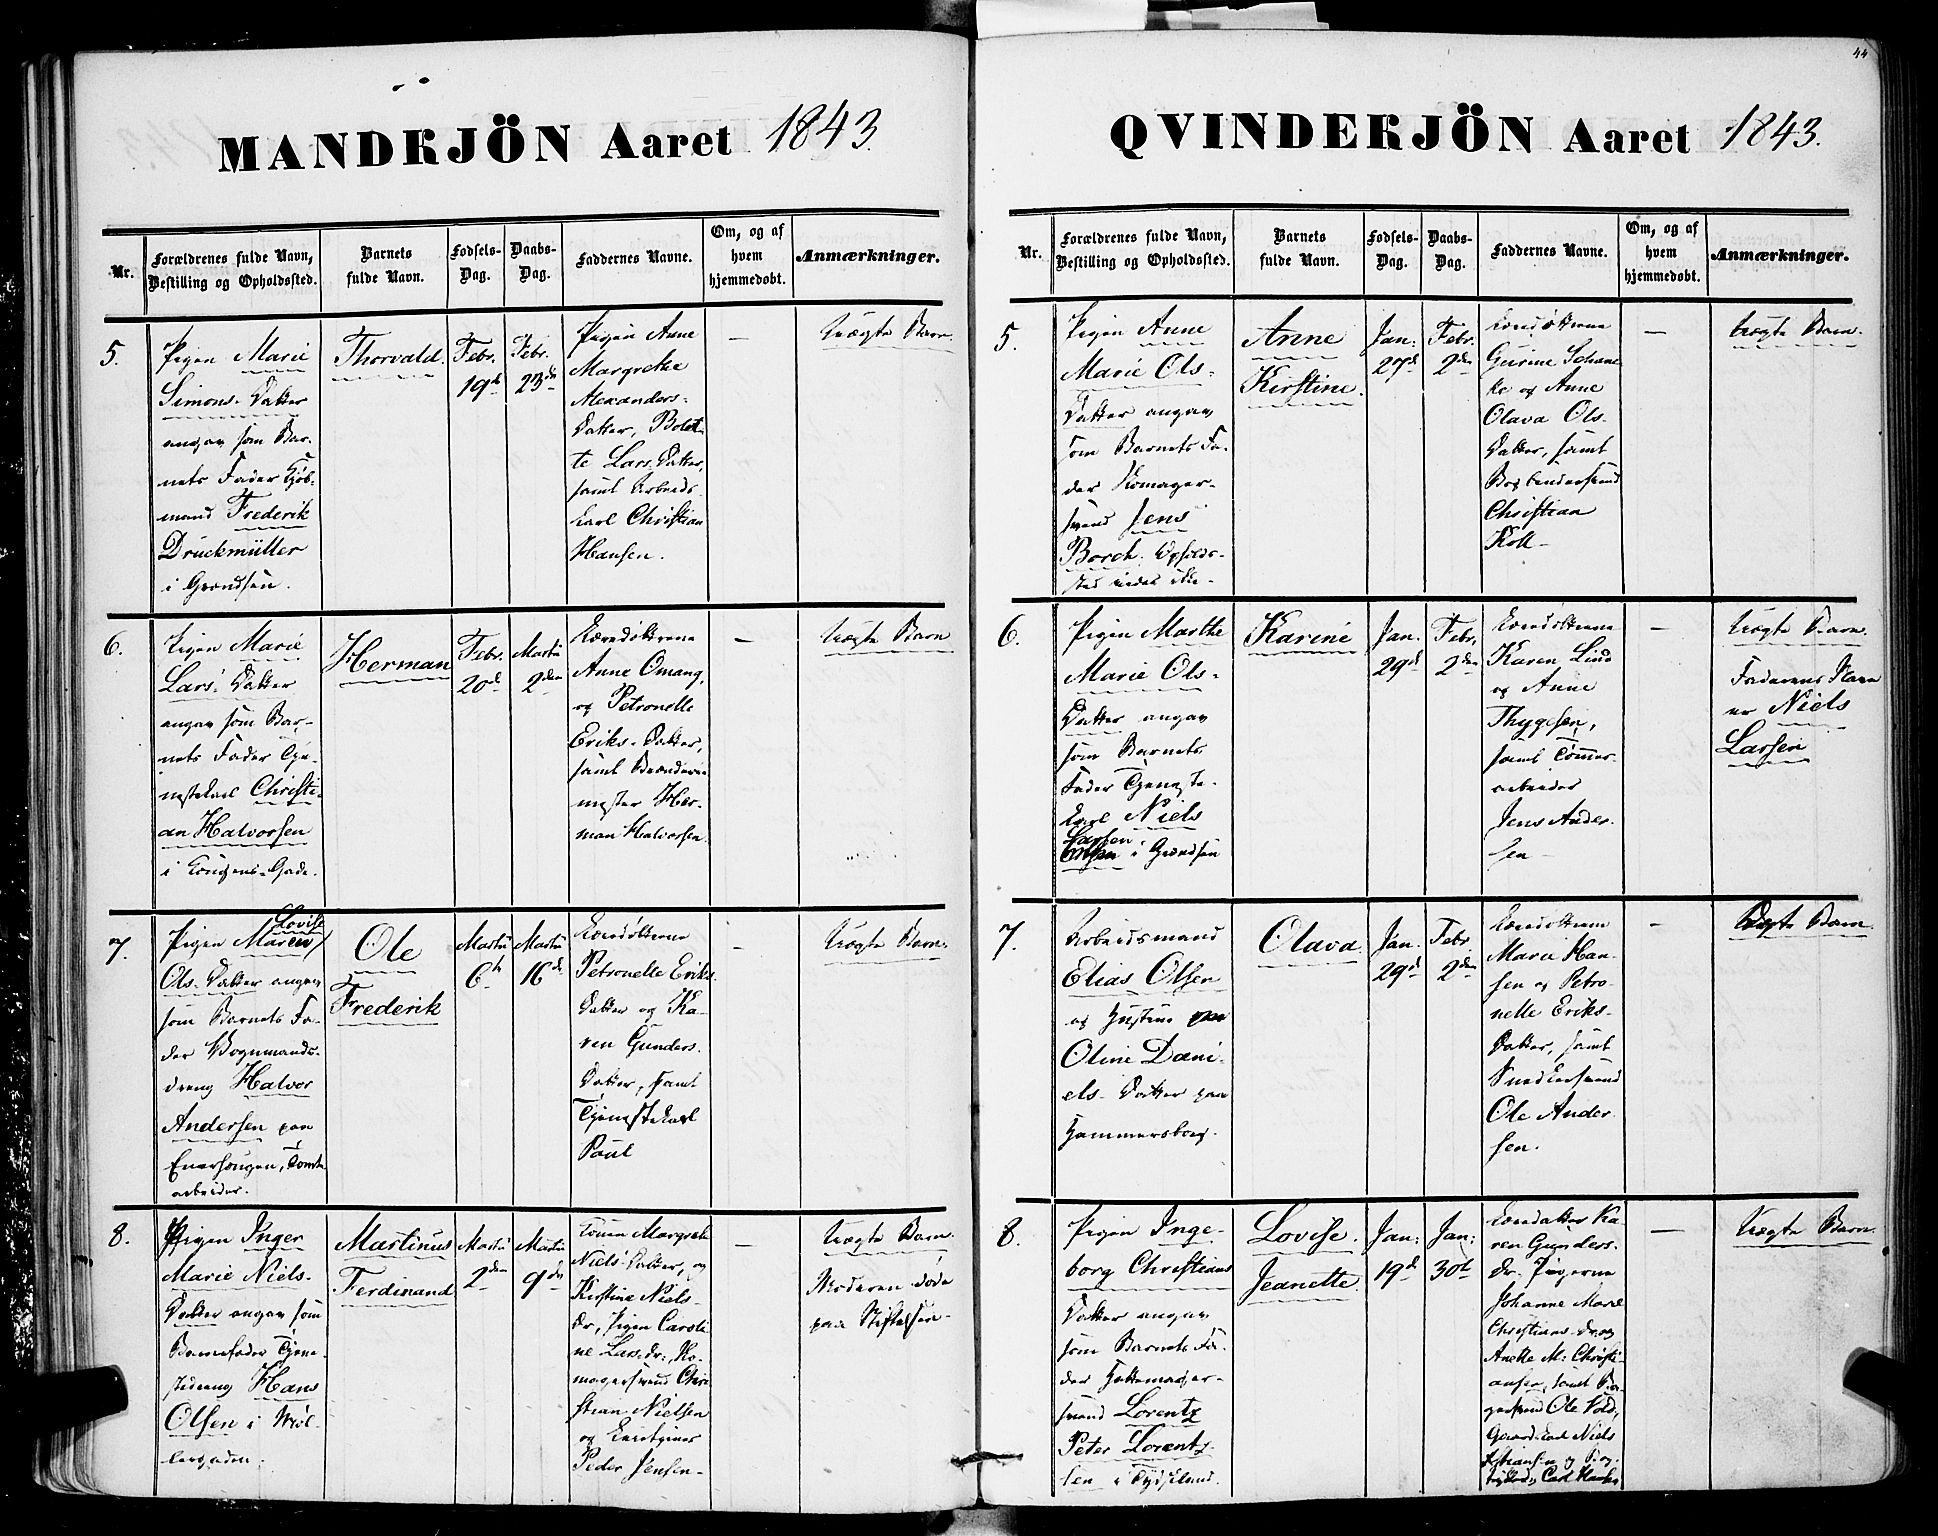 44
MANDKJÖN Aaret 1843.
Nr.
Forældrenes fulde Navn,
Bestilling og Opholdssted.
Barnets
fulde Navn.
Fødsels-
Dag.
Daabs-
Dag.
Faddernes Navne.
Om, og af
hvem
hjemmedøbt.
Anmærkninger.
5.
Pigen Marie
Simons-Datter
angav som Bar-
nets Fader Kjøb-
mand Frederik
Druckmüller
i Grændsen.
Thorvald.
Febr.
19d
Febr.
23de
Pigen Anne
Margrethe
Alexanders-
Datter, Bolet-
te Lars-Datter,
samt Arbeids-
karl Christian
Hansen.
—
Uægte Barn.
6.
Pigen Marie
Lars-Datter
angav som Bar-
nets Fader Tje-
nestekarl Christi-
an Halvorsen
i Kongens-Gade.
Herman
Febr.
20d
Martii
2den
Konedøttrene
Anne Omang,
og Petronelle
Eriks-Datter,
samt Brænderie-
mester Her-
man Halvorsen.
—
Uægte Barn
7.
Lovise
Pigen Maren
Ols-Datter angav
som Barnets Fa-
der Vognmands-
dreng Halvor
Andersen paa
Enerhougen, Tomte-
arbeider.
Ole
Frederik
Martii
6te
Martii
16de
Konedøttrene
Petronelle Eriks-
Datter og Ka-
ren Gunders-
Datter, samt
Tjenestekarl
Paul
—
Uægte Barn.
8.
Pigen Inger
Marie Niels-
Datter angav som
Barnefader Tjene-
stedreng Hans
Olsen i Møl-
lergaden.
Martinus
Ferdinand
Martii
2den
Martii
9de
Konen Margrete
Niels-Datter, og
Kirstine Niels-
dr, Pigen Caroli-
ne Lars-dr:, Ko-
magersvend Chri-
stian Nielsen
og
Peder Jensen-
—
Uægte Barn.
Moderen døde
paa Stiftelsen-
QVINDEKJÖN Aaret 1843.
Nr.
Forældrenes fulde Navn,
Bestilling og Opholdssted.
Barnets
fulde Navn.
Fødsels-
Dag.
Daabs-
Dag.
Faddernes Navne.
Om, og af
hvem
hjemmedøbt.
Anmærkninger.
5.
Pigen Anne
Marie Ols-
Datter angav
som Barnets Fa-
der Komager-
svend Jens
Borch. Opholds-
sted vides ikke-
Anne
Kirstine.
Jan:
27d
Febr.
2den
Konedøttrene
Gurine Schan-
ke og Anne
Olava Ols-
Datter, samt
Bogbindersvend
Christian
Koll-
—
Uægte Barn.
6.
Pigen Marthe
Marie Ols-
Datter angav
som Barnets
Fader Tjeneste-
karl Niels
Larsen
i Grændsen
Karine
Jan:
29d
Febr.
2den
Konedøttrene
Karen Lind
og Anne
Thygesen,
samt Tømmer-
arbeider
Jens Ander-
sen-
—
Uægte Barn.
Faderens Navn
er Niels
Larsen
7.
Arbeidsmand
Elias Olsen
og Hustru
Oline Dani-
els-Datter paa
Hammersborg.
Olava.
Jan:
29d
Febr.
2den
Konedøttrene
Marie Han-
sen og Petro-
nelle Eriks-
Datter, samt
Snedkersvend
Ole Ander-
sen.
—
Ægte Barn.
8.
Pigen Inge-
borg Christians-
Datter angav
som Barnets Fa-
der Hattemager-
svend Lorentz
Peter Lorentz-
sen i Tydskland.
Lovise.
Jeanette.
Jan:
19d
Jan:
30te
Konedatter Ka-
ren Gunders-
dr. Pigerne
Johanne Marie
Christians-dr. og
Anette M: Christi-
ansen, samt
Ole Vold,
Gaardskarl Niels
Kristiansen og
Carl
—
Uægte Barn.